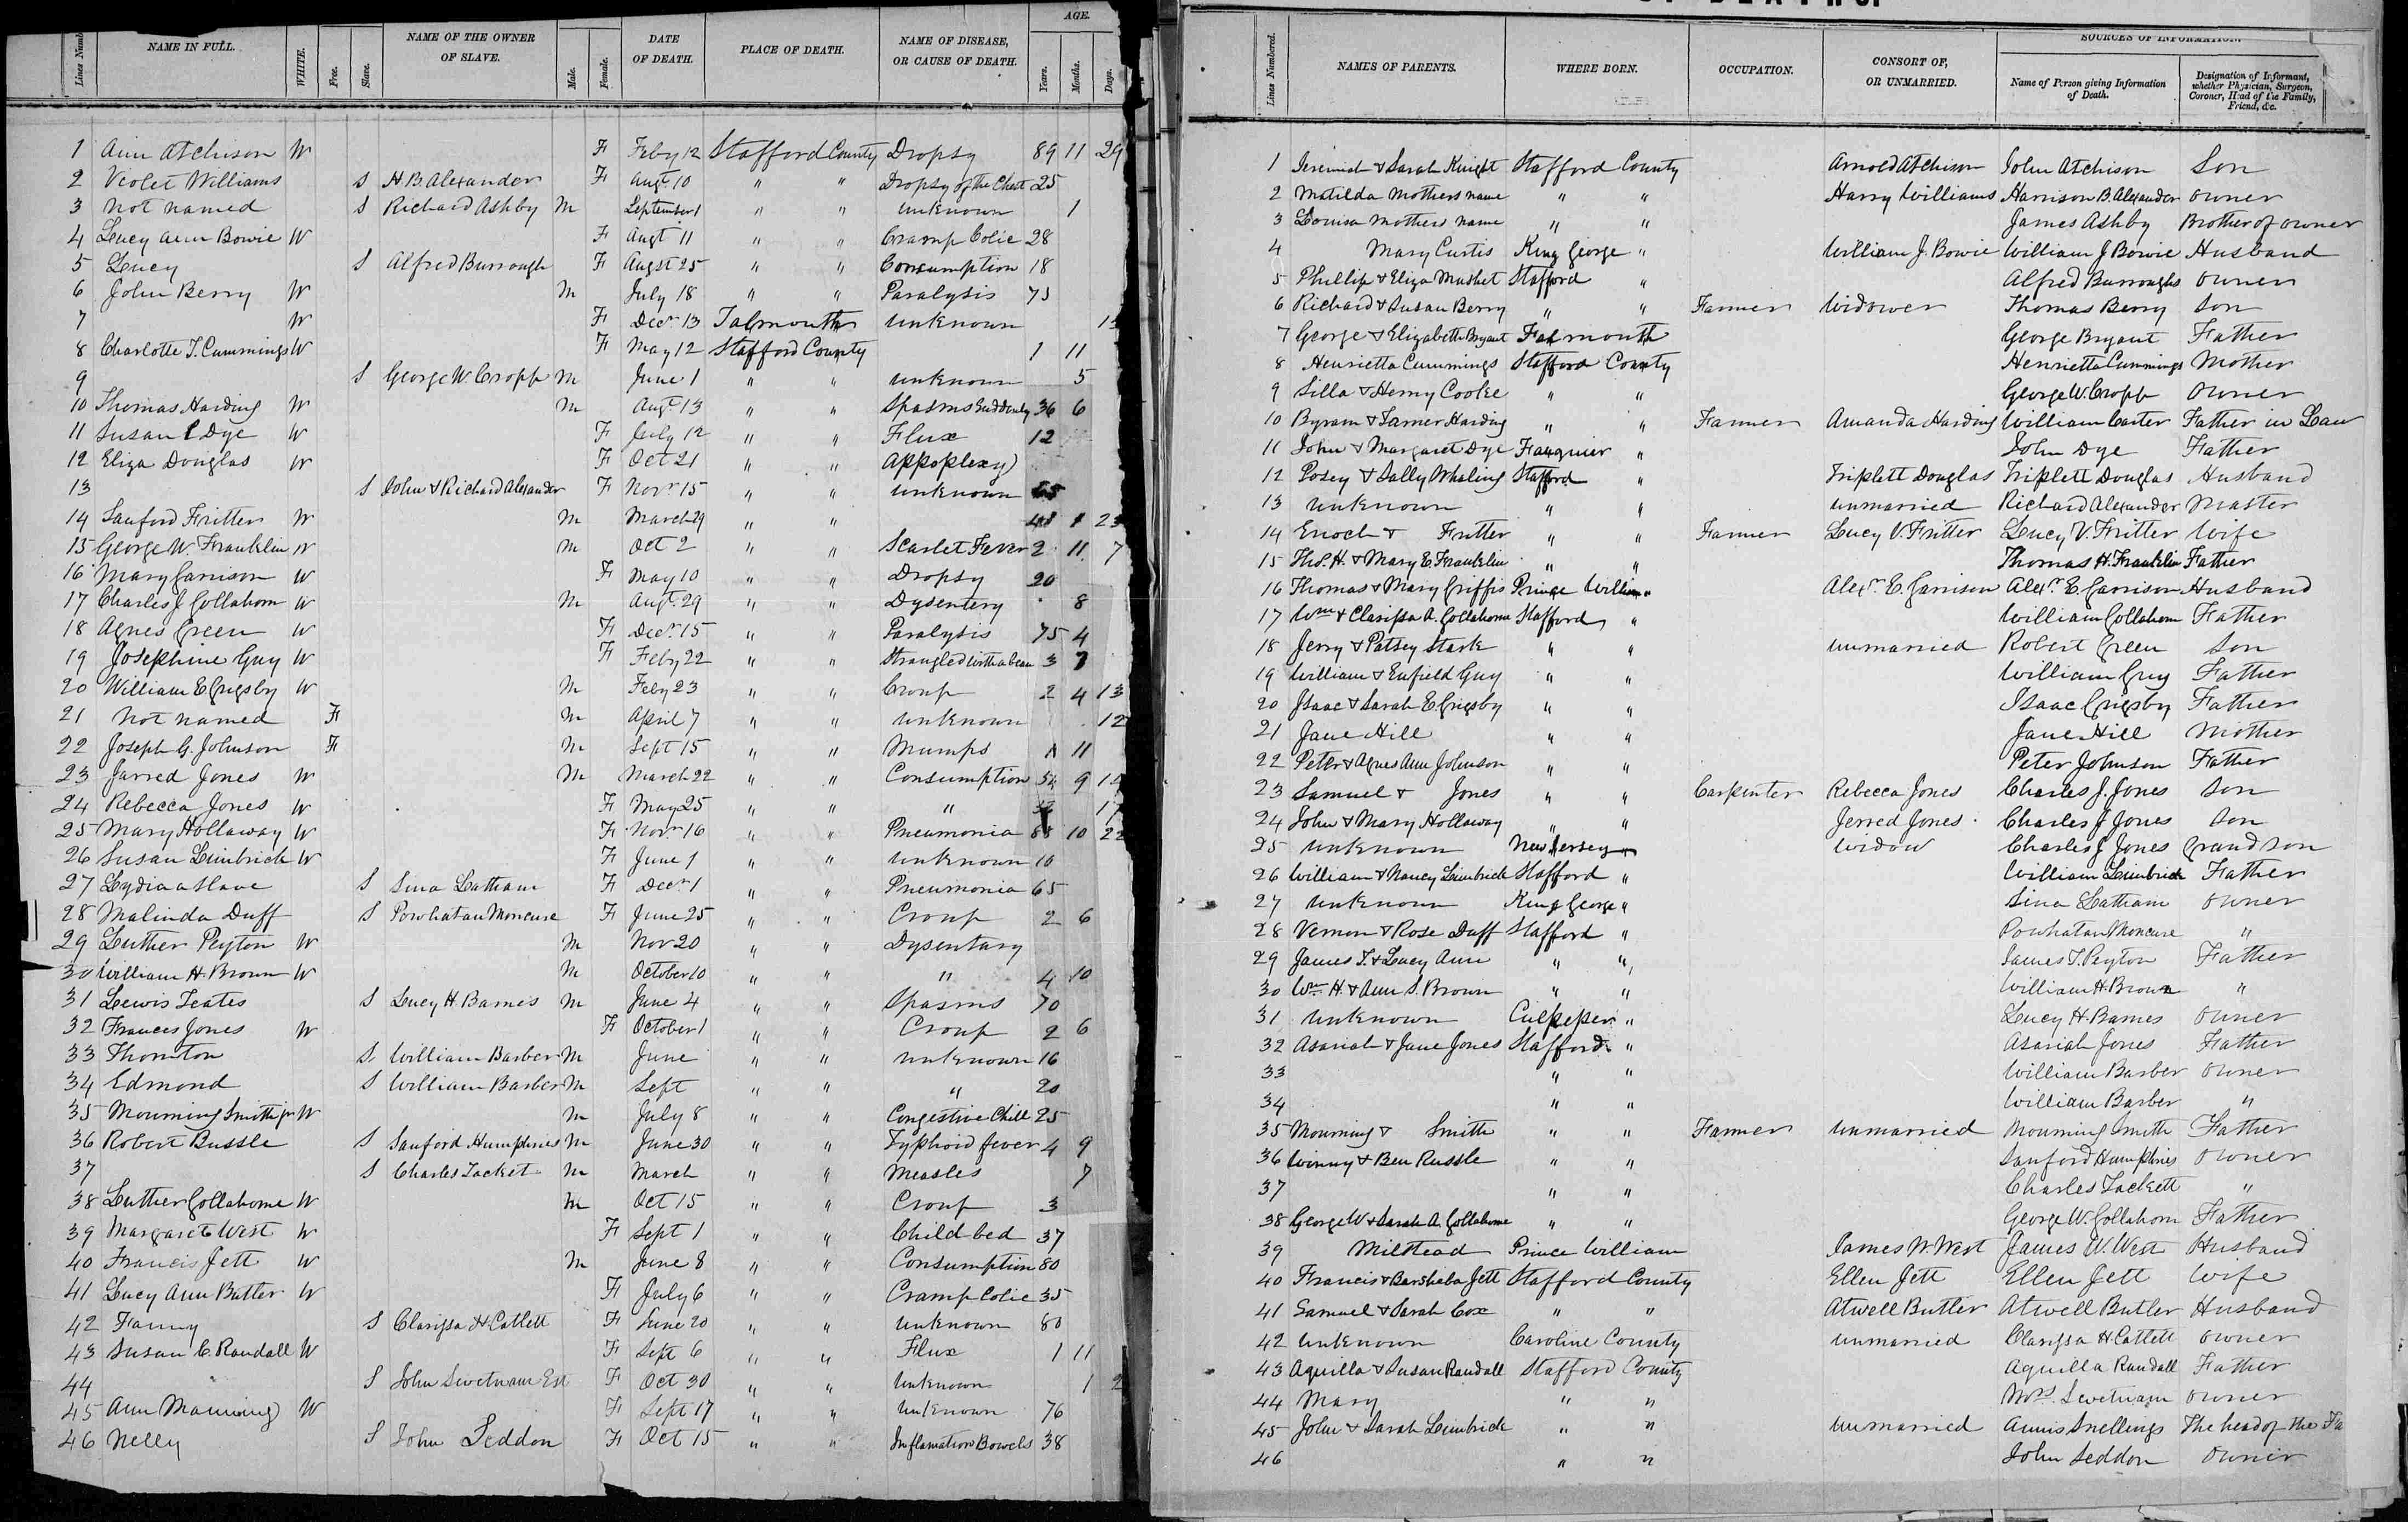 OF DEATHS.
Lines Numb NAME IN FULL. WHITE. Free. Slave. NAME OF THE OWNER OF SLAVE. Male. Female. DATE OF DEATH. PLACE OF DEATH. NAME OF DISEASE, OR CAUSE OF DEATH. AGE. Years. Months. Days.
1 Ann Atchison W F Feby 12 Stafford County Dropsy 89 11 29
2 Violet Williams S H B. Alexander F Augt 10 " " Dropsy of the Chest 25
3 not named S Richard Ashby M September 1 " " unknown 1
4 Lucy Ann Bowie W F Augt 11 " " Cramp Colic 28
5 Lucy S Alfred Burrough F Augst 25 " " Consumption 18
6 John Berry W M July 18 " " Paralysis 75
7 W F Decr 13 Falmouth unknown
8 Charlotte T. Cummings W F May 12 Stafford County 1 11
9 S George W. Cropp M June 1 " " unknown 5
10 Thomas Harding W M Augt 13 " " Spasms Suddenly 36 6
11 Susan Dye W F July 12 " " Flux 12
12 Eliza Douglas W F Oct 21 " " Appoplexy
13 S John & Richard Alexander F Novr 15 " " unknown 65
14 Sanford Fritter W M March 29 " " 48 1 23
15 George W. Franklin W M Oct 2 " " Scarlet Fever 2 11 7
16 Mary Garrison W F May 10 " " Dropsy 20
17 Charles J Gollahorn W M Augt 29 " " Dysentery 8
18 Agnes Green W F Decr 15 " " Paralysis 75 4
19 Josephine Guy W F Feby 22 " " Strangled with a bean 3 7
20 William E Grigsby W M Feby 23 " " Croup 2 4 13
21 not named F M April 7 " " unknown 12
22 Joseph G. Johnson F M Sept 15 " " Mumps 1 11
23 Jarred Jones W M March 22 " " Consumption 54 9
24 Rebecca Jones W F May 25 " " " 17
25 Mary Hollaway W F Novr 16 " " Pneumonia 88 10 22
26 Susan Limbrick W F June 1 " " unknown 10
27 Lydia a slave S Sina Latham F Decr 1 " " Pneumonia 65
28 Malinda Duff S Powhatan Moncure F June 25 " " Croup 2 6
29 Luther Peyton W M Nov 20 " " Dysentary
30 William H. Brown W M October 10 " " " 4 10
31 Lewis Teates S Lucy H. Barnes M June 4 " " Spasms 70
32 Frances Jones W F October 1 " " Croup 2 6
33 Thornton S William Barber M June " " unknown 16
34 Edmond S William Barber M Sept " " " 20
35 Mourning Smith jr W M July 8 " " Congestive Chill 25
36 Robert Bussle S Sanford Humphries M June 30 " " Typhoid fever 4 9
37 S Charles Tacket M March " " Measles 7
38 Luther Gollahome W M Oct 15 " " Croup 3
39 Margaret West W F Sept 1 " " Child bed 37
40 Francis Jett W M June 8 " " Consumption 80
41 Lucy Ann Butler W F July 6 " " Cramp Colic 35
42 Fanny S Clarissa H. Catlett F June 20 " " unknown 80
43 Susan C. Randall W F Sept 6 " " Flux 1 11
44 S John Swetnam Est F Oct 30 " " unknown 1 2
45 Ann Manning W F Sept 17 " " unknown 76
46 Nelly S John Seddon F Oct 15 " " Inflamation Bowels 38
Lines Numbered. NAMES OF PARENTS. WHERE BORN. OCCUPATION. CONSORT OF, OR UNMARRIED. SOURCES OF INFORMATION. Name of Person giving Information of Death. Designation of Informant, whether Physician, Surgeon, Coroner, Head of the Family, Friend, &c.
1 Jeremiah & Sarah Knight Stafford County Arnold Atchison John Atchison Son
2 Matilda Mothers name " " Harry Williams Harrison B. Alexander owner
3 Louisa mothers name " " James Ashby Brother of owner
4 Mary Curtis King George " William J. Bowie William J Bowie Husband
5 Phillip & Eliza Mushet Stafford " Alfred Burroughs owner
6 Richard & Susan Berry " " Farmer Widower Thomas Berry son
7 George & Elizabeth Bryant Falmouth George Bryant Father
8 Henrietta Cummings Stafford County Henrietta Cummings Mother
9 Silla & Henry Cooke " " George W. Cropp owner
10 Byram & Harding " " Farmer Amanda Harding William Carter Father in Law
11 John & Margaret Dye Fauquier " John Dye Father
12 Posey & Sally Whaling Stafford " Triplett Douglas Triplett Douglas Husband
13 unknown " " unmarried Richard Alexander Master
14 Enoch & Fritter " " Farmer Lucy V. Fritter Lucy V Fritter Wife
15 Thos. H. & Mary E. Franklin " " Thomas H. Franklin Father
16 Thomas & Mary Griffis Prince William " Alexr E. Garrison Alexr E Garrison Husband
17 Wm & Clarissa A. Gollahorne Stafford " William Gollahorn Father
18 Jerry & Patsey Stark " " unmarried Robert Green Son
19 William & Enfield Guy " " William Guy Father
20 Isaac & Sarah E Grigsby " " Isaac Grigsby Father
21 Jane Hill " " Jane Hill Mother
22 Peter & Agnes Ann Johnson " " Peter Johnson Father
23 Samuel & Jones " " Carpenter Rebecca Jones Charles J. Jones Son
24 John & Mary Hollaway " " Jerred Jones Charles J Jones Son
25 unknown New Jersey " Widow Charles J Jones Grand Son
26 William & Nancy Limbrick Stafford " William Limbrick Father
27 unknown King George " Sina Latham owner
28 Vernon & Rose Duff Stafford " Powhatan Moncure "
29 James T. & Lucy Ann " " James T. Peyton Father
30 Wm H. & Ann S. Brown " " William H. Brown "
31 unknown Culpeper " Lucy H. Barnes owner
32 Asariah & Jane Jones Stafford " Asariah Jones Father
33 " " William Barber owner
34 " " William Barber "
35 Mourning & Smith " " Farmer unmarried Mourning Smith Father
36 Winny & Ben Russle " " Sanford Humphries owner
37 " " Charles Tackett "
38 George W & Sarah A. Gollahorne " " George W. Gollahorn Father
39 Milstead Prince William James W. West James W. West Husband
40 Francis & Barsheba Jett Stafford County Ellen Jett Ellen Jett Wife
41 Samuel & Sarah Cox " " Atwell Butler Atwell Butler Husband
42 unknown Caroline County unmarried Clarissa H. Catlett owner
43 Aquilla & Susan Randall Stafford County Aquilla Randall Father
44 Mary " " Mrs. Swetnam owner
45 John & Sarah Limbrick " " unmarried Annis Snellings The head of the Fa
46 " " John Seddon owner